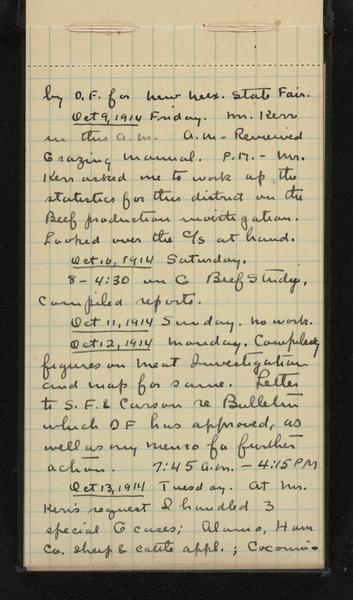 by D.F. for New Mex. State Fair.
Oct 9, 1914 Friday. Mr. Kerr
in this a.m. A.M. - Reviewed
Grazing Manual. P.M. - Mr.
Kerr asked me to work up the
statistics for this district on the
Beef production investigation.
Looked over the C/s at hand.
Oct 10, 1914 Saturday.
8 - 4:30 on G Beef Studys,
Compiled reports.
Oct 11, 1914 Sunday. No work.
Oct 12, 1914 Monday. Compiled
figures on Meat Investigation
and map for same. Letter
to S.F. & Carson re Bulletin
which DF has approved, as
well as my memo for further
action. 7:45 a.m. - 4:15 PM
Oct 13, 1914 Tuesday. At Mr.
Kerr's request I handled 3
special G cases; Alamo, Ham
Co. sheep & cattle appl.; Coconino